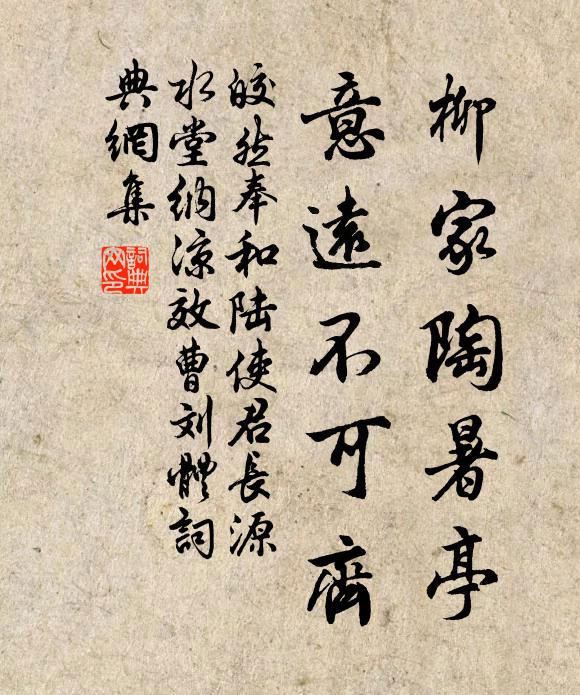 柳家陶暑亭
意遠不可齊
皎然奉和陸使君長源
水堂納涼效曹刘體詞
典網集
詞典
网印